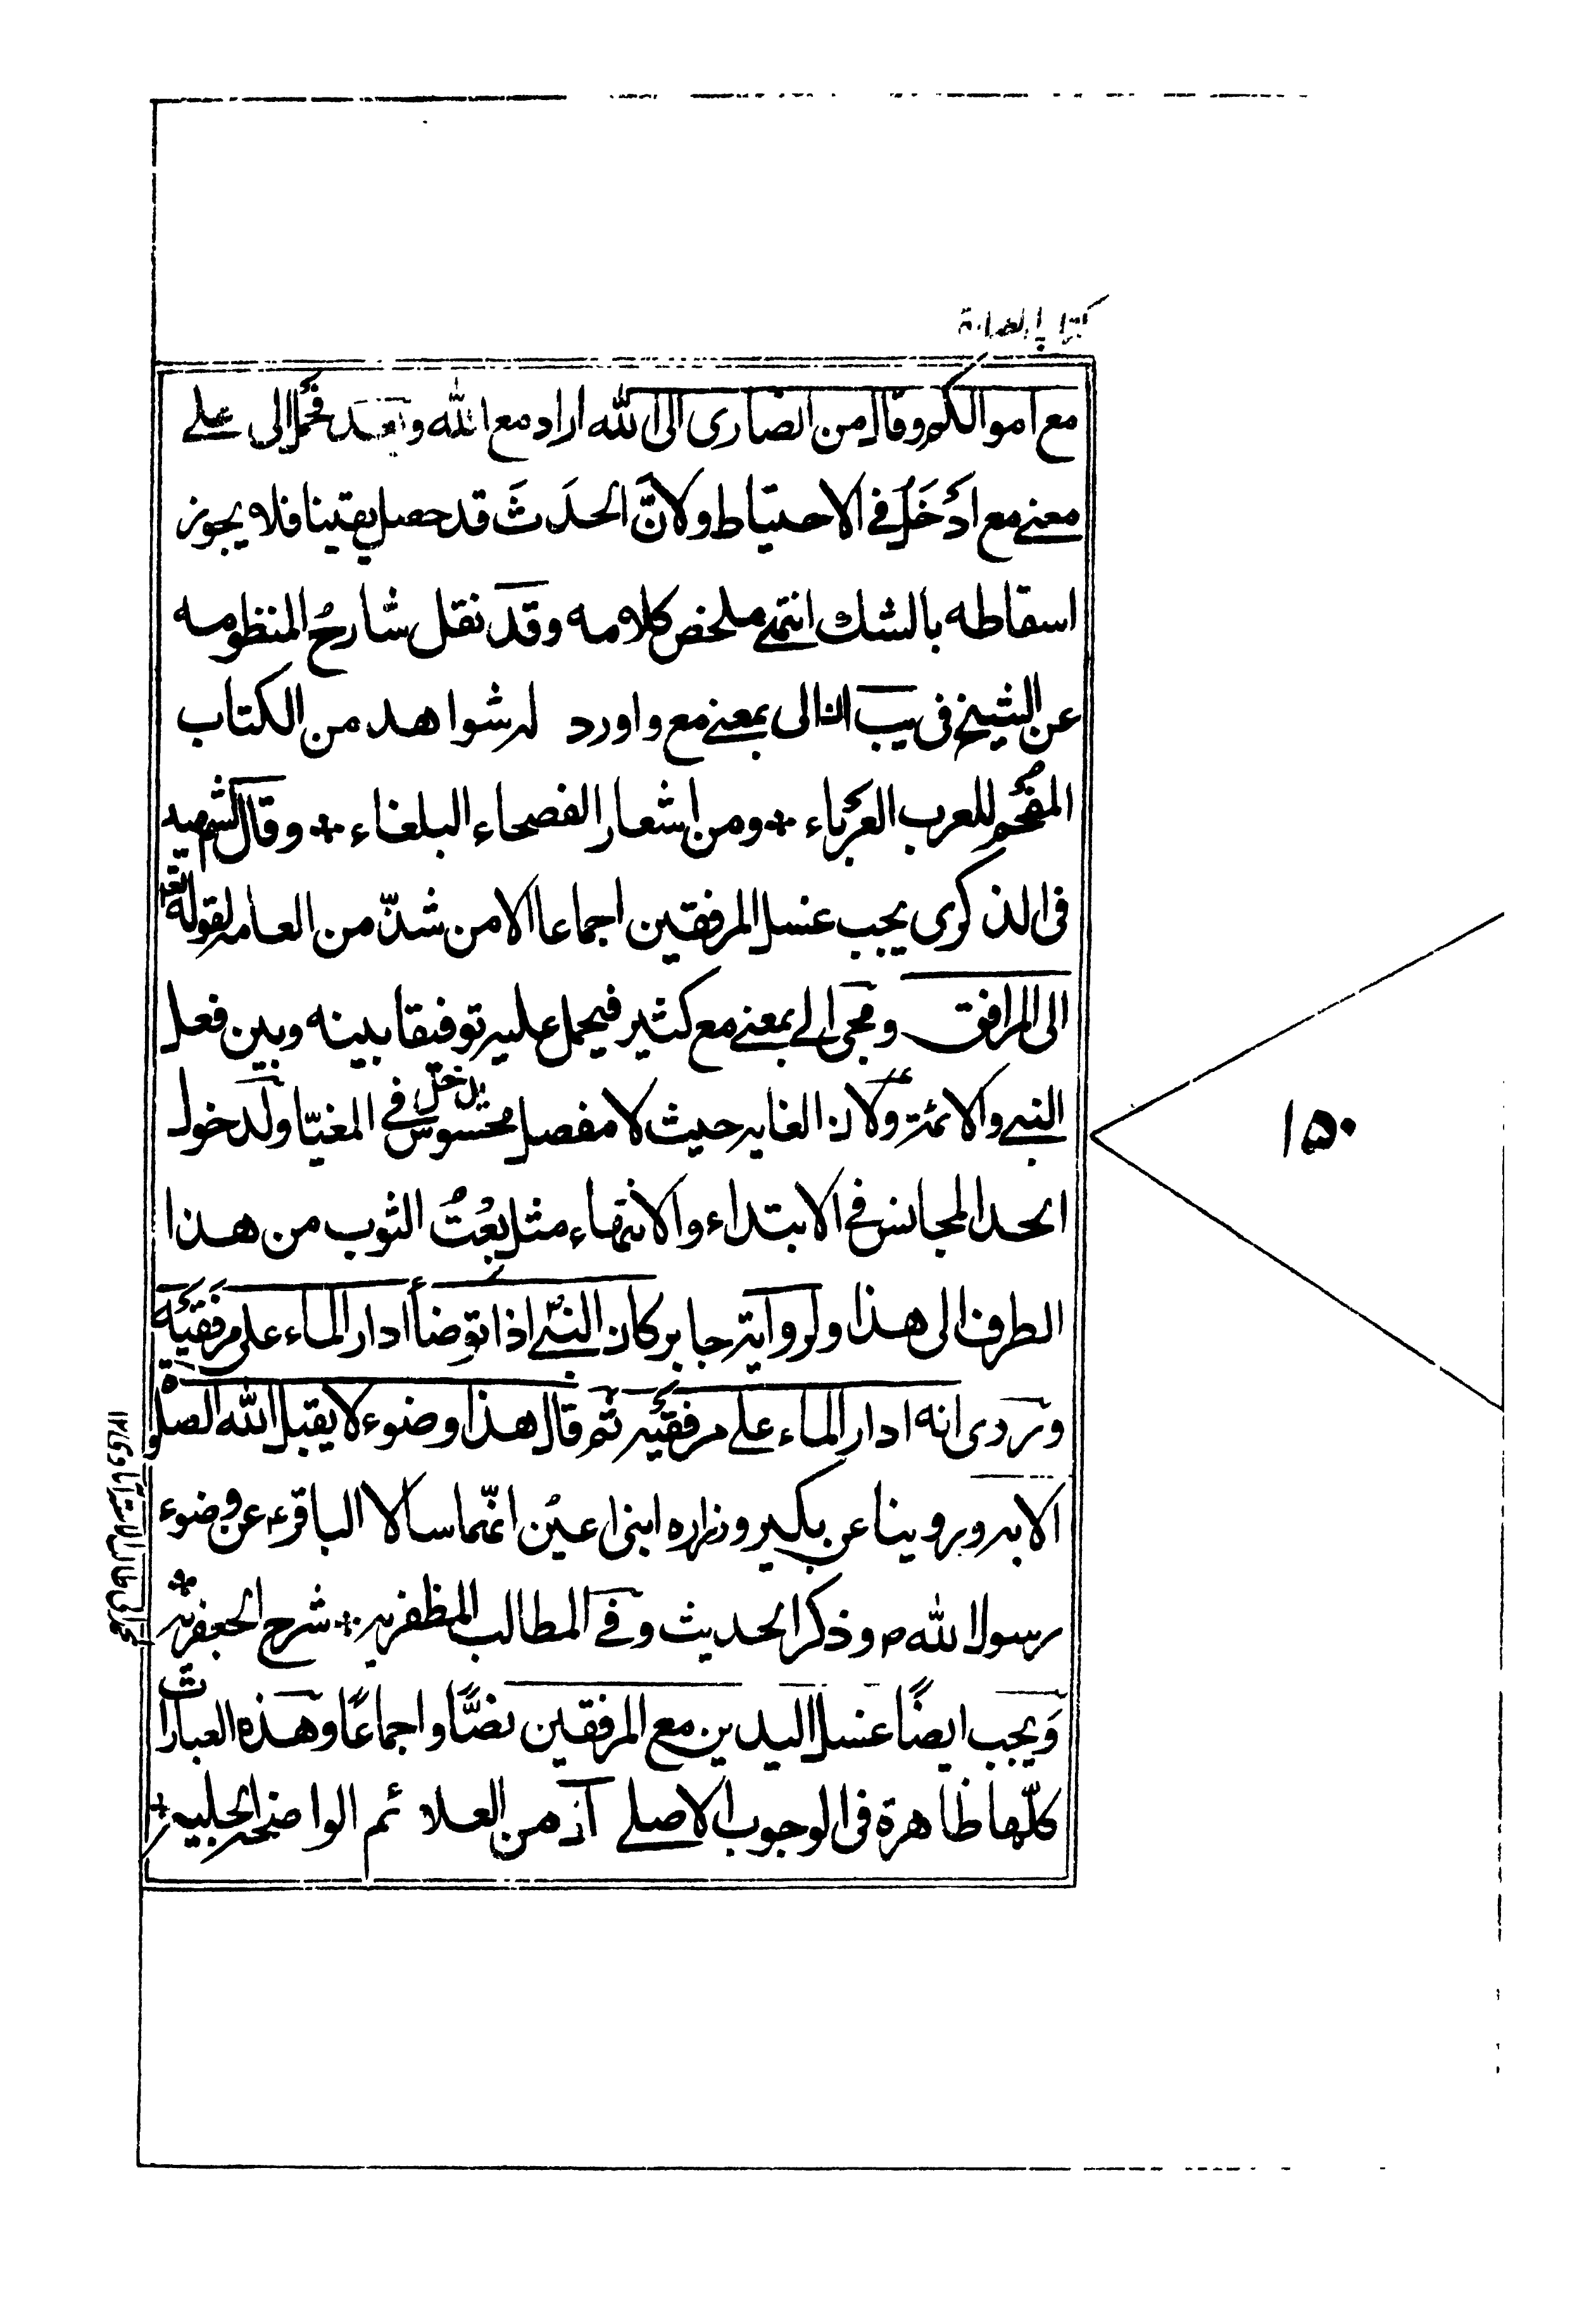 كتاب الطهارة
مع اموالكم وقال من انصارى الى الله اراد مع الله وبعد فحمل الى على
معنى مع ادخل فى الاحتياط ولان الحدث قد حصل يقينا فلا يجوز
اسقاطه بالشك انتهى ملخص كلامه وقد نقل شارح المنظومه
عن الشيخ فى يب ان الى بمعنى مع واورد له شواهد من الكتاب
المفحم للعرب العرباء ومن اشعار الفصحاء البلغاء وقال الشهيد
فى الذكرى يجب غسل المرفقين اجماعا الا من شذّ من العامه لقوله تعه
الى المرافق ومجى الى بمعنى مع كثير فيحمل عليه توفيقا بينه وبين فعل
النبى والائمة ع ولان الغايه حيث لا مفصل محسوس يدخل فى المغيّا ولدخول
الحد المجانس فى الابتداء والانتهاء مثل بعْتُ الثوب من هذا
الطرف الى هذا ولرواية جابر كان النبى اذا توضأ ادار الماء على مرفقيه
وروى انه ادار الماء على مرفقيه ثم قال هذا وضوء لا يقبل الله الصلوة
الا به وروينا عن بكير وزراره ابنى اعين انهما سالا الباقر ع عن وضوء
رسول الله ص وذكر الحديث وفى المطالب المظفريه شرح الجعفريه
ويجب ايضًا غسل اليدين مع المرفقين نصًّا واجماعًا وهذه العبارات
كلّها ظاهرة فى الوجوب الاصلى اذ من العلائم الواضحه الجليه
١٥٠